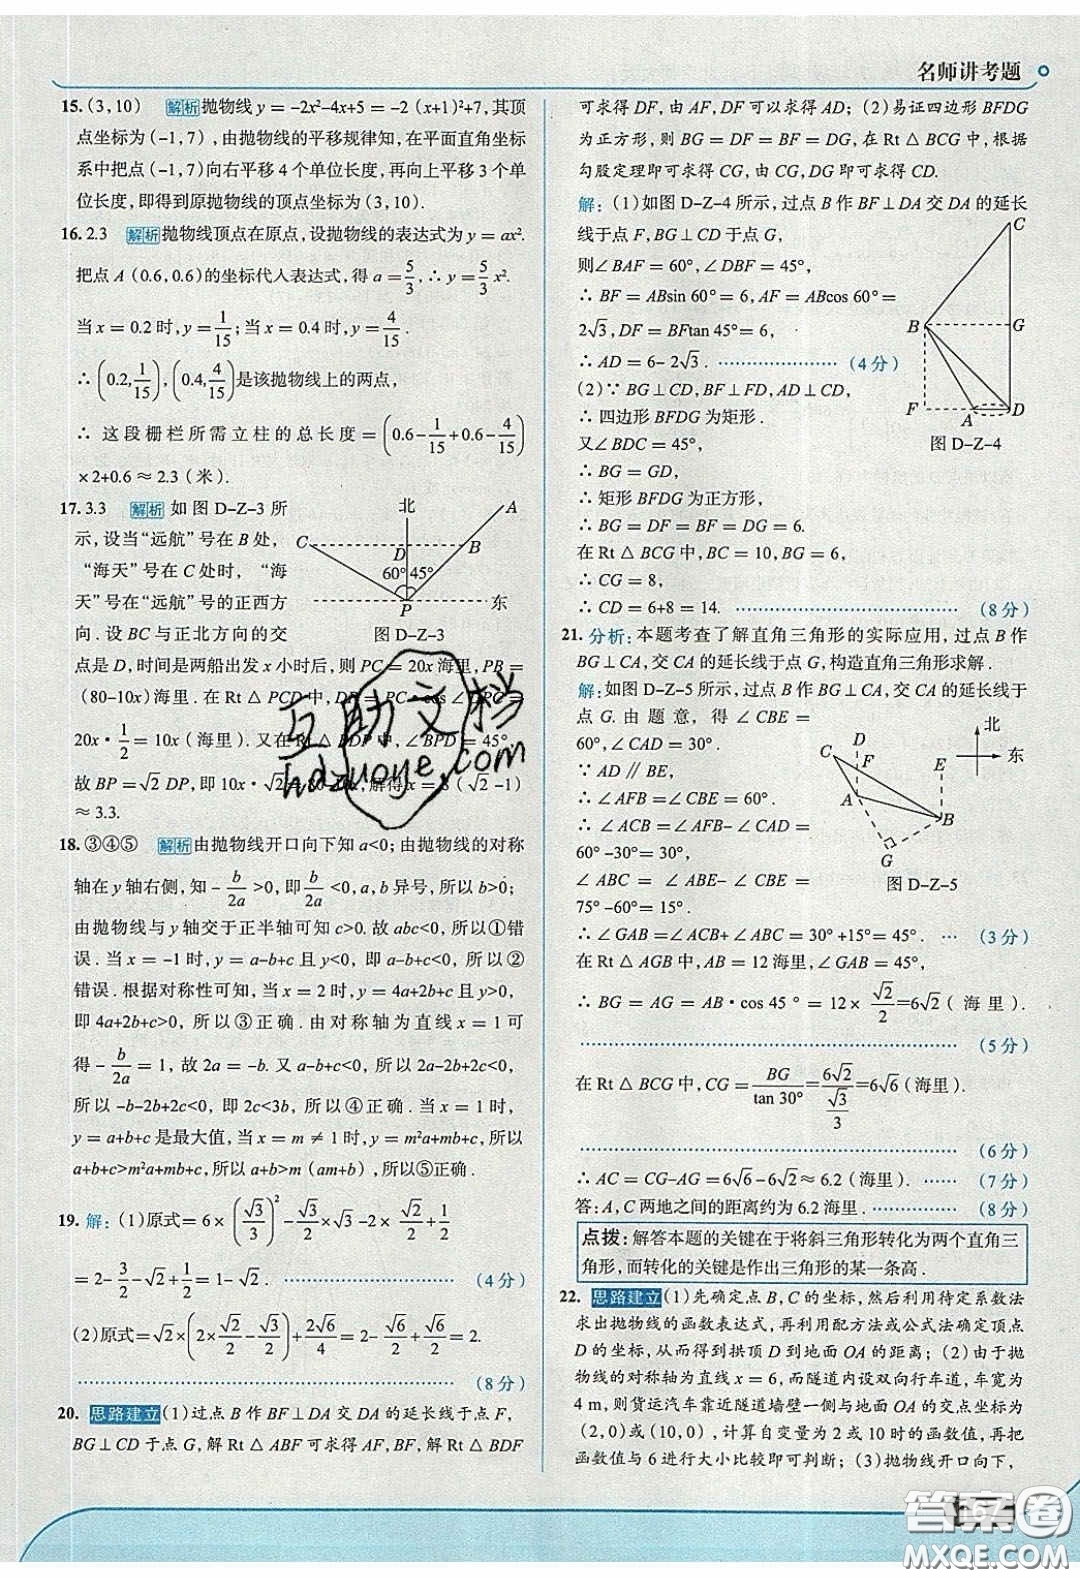 名师讲考题
15. (3,10) 解析 抛物线 y = -2x²-4x+5 = -2 (x+1)²+7, 其顶
点坐标为 (-1,7), 由抛物线的平移规律知, 在平面直角坐标
系中把点 (-1,7) 向右平移 4 个单位长度, 再向上平移 3 个单
位长度, 即得到原抛物线的顶点坐标为 (3,10).
16. 2.3 解析 抛物线顶点在原点, 设抛物线的表达式为 y = ax².
把点 A (0.6,0.6) 的坐标代入表达式, 得 a = 5/3, ∴ y = 5/3 x².
当 x = 0.2 时, y = 1/15; 当 x = 0.4 时, y = 4/15 .
∴ (0.2, 1/15), (0.4, 4/15) 是该抛物线上的两点,
∴ 这段栅栏所需立柱的总长度 = (0.6- 1/15 +0.6- 4/15)
×2+0.6 ≈ 2.3 (米).
17. 3.3 解析 如图 D-Z-3 所
示, 设当“远航”号在 B 处,
“海天”号在 C 处时, “海
天”号在“远航”号的正西方
向. 设 BC 与正北方向的交
北
A
C
D
B
60° 45°
P
东
图 D-Z-3
点是 D, 时间是两船出发 x 小时后, 则 PC = 20x 海里, PB =
(80-10x) 海里. 在 Rt △ PCD 中, DP = PC · cos ∠ DPC =
20x · 1/2 = 10x (海里). 又在 Rt △ BDP 中, ∠ BPD = 45°,
故 BP = √2 DP, 即 10x · √2 = 80-10x, 解得 x = 8 (√2 -1)
≈ 3.3.
18. ③④⑤ 解析 由抛物线开口向下知 a<0; 由抛物线的对称
轴在 y 轴右侧, 知 - b/2a >0, 即 b/2a <0, a, b 异号, 所以 b>0;
由抛物线与 y 轴交于正半轴可知 c>0. 故 abc<0, 所以①错
误. 当 x = -1 时, y = a-b+c 且 y<0, 即 a-b+c<0, 所以②
错误. 根据对称性可知, 当 x = 2 时, y = 4a+2b+c, 且 y>0,
即 4a+2b+c>0, 所以③正确. 由对称轴为直线 x = 1 可
得 - b/2a = 1, 故 2a = -b. 又 a-b+c<0, 故 2a-2b+2c<0,
所以 -b-2b+2c<0, 即 2c<3b, 所以④正确. 当 x = 1 时,
y = a+b+c 是最大值, 当 x = m ≠ 1 时, y = m²a+mb+c, 所以
a+b+c>m²a+mb+c, 所以 a+b>m (am+b), 所以⑤正确.
19. 解: (1) 原式 = 6× (√3/3)² - √3/2 ×√3 -2× √2/2 + 1/2
= 2- 3/2 -√2 + 1/2 = 1-√2 . ………… (4 分)
(2) 原式 = √2 × (2× √2/2 - √3/2) + 2√6/4 = 2- √6/2 + √6/2 = 2.
………… (8 分)
20. 思路建立 (1) 过点 B 作 BF ⊥ DA 交 DA 的延长线于点 F,
BG ⊥ CD 于点 G, 解 Rt △ ABF 可求得 AF, BF, 解 Rt △ BDF
可求得 DF, 由 AF, DF 可以求得 AD; (2) 易证四边形 BFDG
为正方形, 则 BG = DF = BF = DG, 在 Rt △ BCG 中, 根据
勾股定理即可求得 CG, 由 CG, DG 即可求得 CD.
解: (1) 如图 D-Z-4 所示, 过点 B 作 BF ⊥ DA 交 DA 的延长
线于点 F, BG ⊥ CD 于点 G,
则∠ BAF = 60°, ∠ DBF = 45°,
∴ BF = ABsin 60° = 6, AF = ABcos 60° =
2√3, DF = BFtan 45° = 6,
∴ AD = 6- 2√3 . ………… (4 分)
(2) ∵ BG ⊥ CD, BF ⊥ FD, AD ⊥ CD,
∴ 四边形 BFDG 为矩形 .
又∠ BDC = 45°,
∴ BG = GD,
∴ 矩形 BFDG 为正方形,
∴ BG = DF = BF = DG = 6.
在 Rt △ BCG 中, BC = 10, BG = 6,
∴ CG = 8,
∴ CD = 6+8 = 14. ………… (8 分)
C
B
G
F
A
D
图 D-Z-4
21. 分析: 本题考查了解直角三角形的实际应用, 过点 B 作
BG ⊥ CA, 交 CA 的延长线于点 G, 构造直角三角形求解 .
解: 如图 D-Z-5 所示, 过点 B 作 BG ⊥ CA, 交 CA 的延长线于
点 G. 由 题 意, 得 ∠ CBE =
60°, ∠ CAD = 30°.
∵ AD ∥ BE,
∴ ∠ AFB = ∠ CBE = 60°.
∴ ∠ ACB = ∠ AFB- ∠ CAD =
60° -30° = 30°.
∴ ∠ ABC = ∠ ABE- ∠ CBE =
75° -60° = 15°.
北
东
D
C
F
E
A
B
G
图 D-Z-5
∴ ∠ GAB = ∠ ACB+ ∠ ABC = 30° +15° = 45° . … (3 分)
在 Rt △ AGB 中, AB = 12 海里, ∠ GAB = 45°,
∴ BG = AG = AB · cos 45 ° = 12× √2/2 =6√2 (海里).
………… (5 分)
在 Rt △ BCG 中, CG = BG/tan 30° = 6√2/(√3/3) =6√6 (海里).
………… (6 分)
∴ AC = CG-AG = 6√6 -6√2 ≈ 6.2 (海里). …… (7 分)
答: A, C 两地之间的距离约为 6.2 海里. ………… (8 分)
点拨: 解答本题的关键在于将斜三角形转化为两个直角三
角形, 而转化的关键是作出三角形的某一条高 .
22. 思路建立 (1) 先确定点 B, C 的坐标, 然后利用待定系数法
求出抛物线的函数表达式, 再利用配方法或公式法确定顶点
D 的坐标, 从而得到拱顶 D 到地面 OA 的距离; (2) 由于抛
物线的对称轴为直线 x = 6, 而隧道内设双向行车道, 车宽为
4 m, 则货运汽车靠近隧道墙壁一侧与地面 OA 的交点坐标为
(2,0) 或 (10,0), 计算自变量为 2 或 10 时的函数值, 再把
函数值与 6 进行大小比较即可判断; (3) 抛物线开口向下,
互助文档
hdzuoye.com
答案圈
MXQE.COM